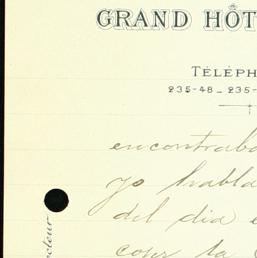 GRAND HÔT
TÉLÉPH
235-48 _ 235-
encontraba
yo habla
del dia e
coser la
cteur